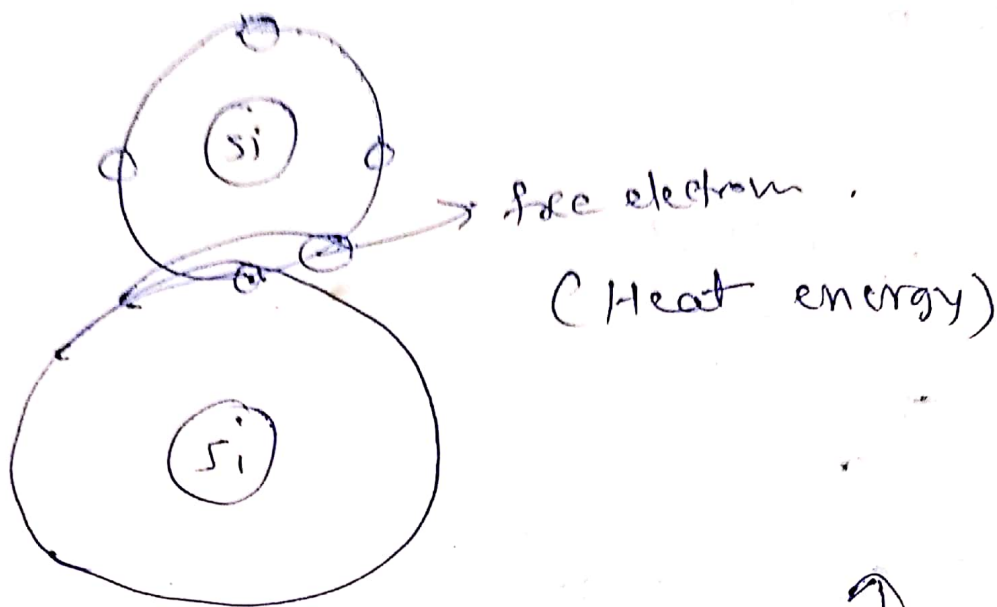 Si
free electron .
(Heat energy)
Si